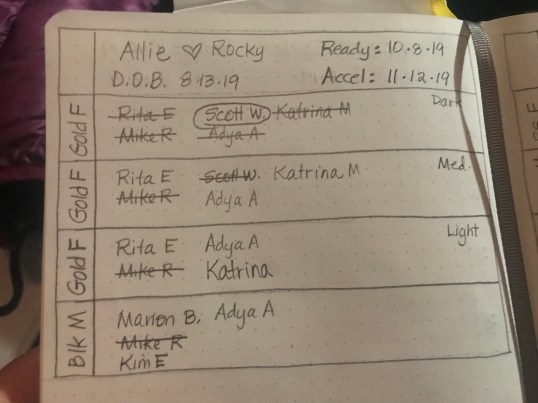 Allie ♡ Rocky Ready: 10.8.19
D.O.B. 8.13.19 Accel: 11.12.19
Gold F
Rita E Scott W. Katrina M Dark
Mike R Adya A
Gold F
Rita E Scott W. Katrina M Med.
Mike R Adya A
Gold F
Rita E Adya A Light
Mike R Katrina
Blk M
Marion B. Adya A
Mike R
Kim E